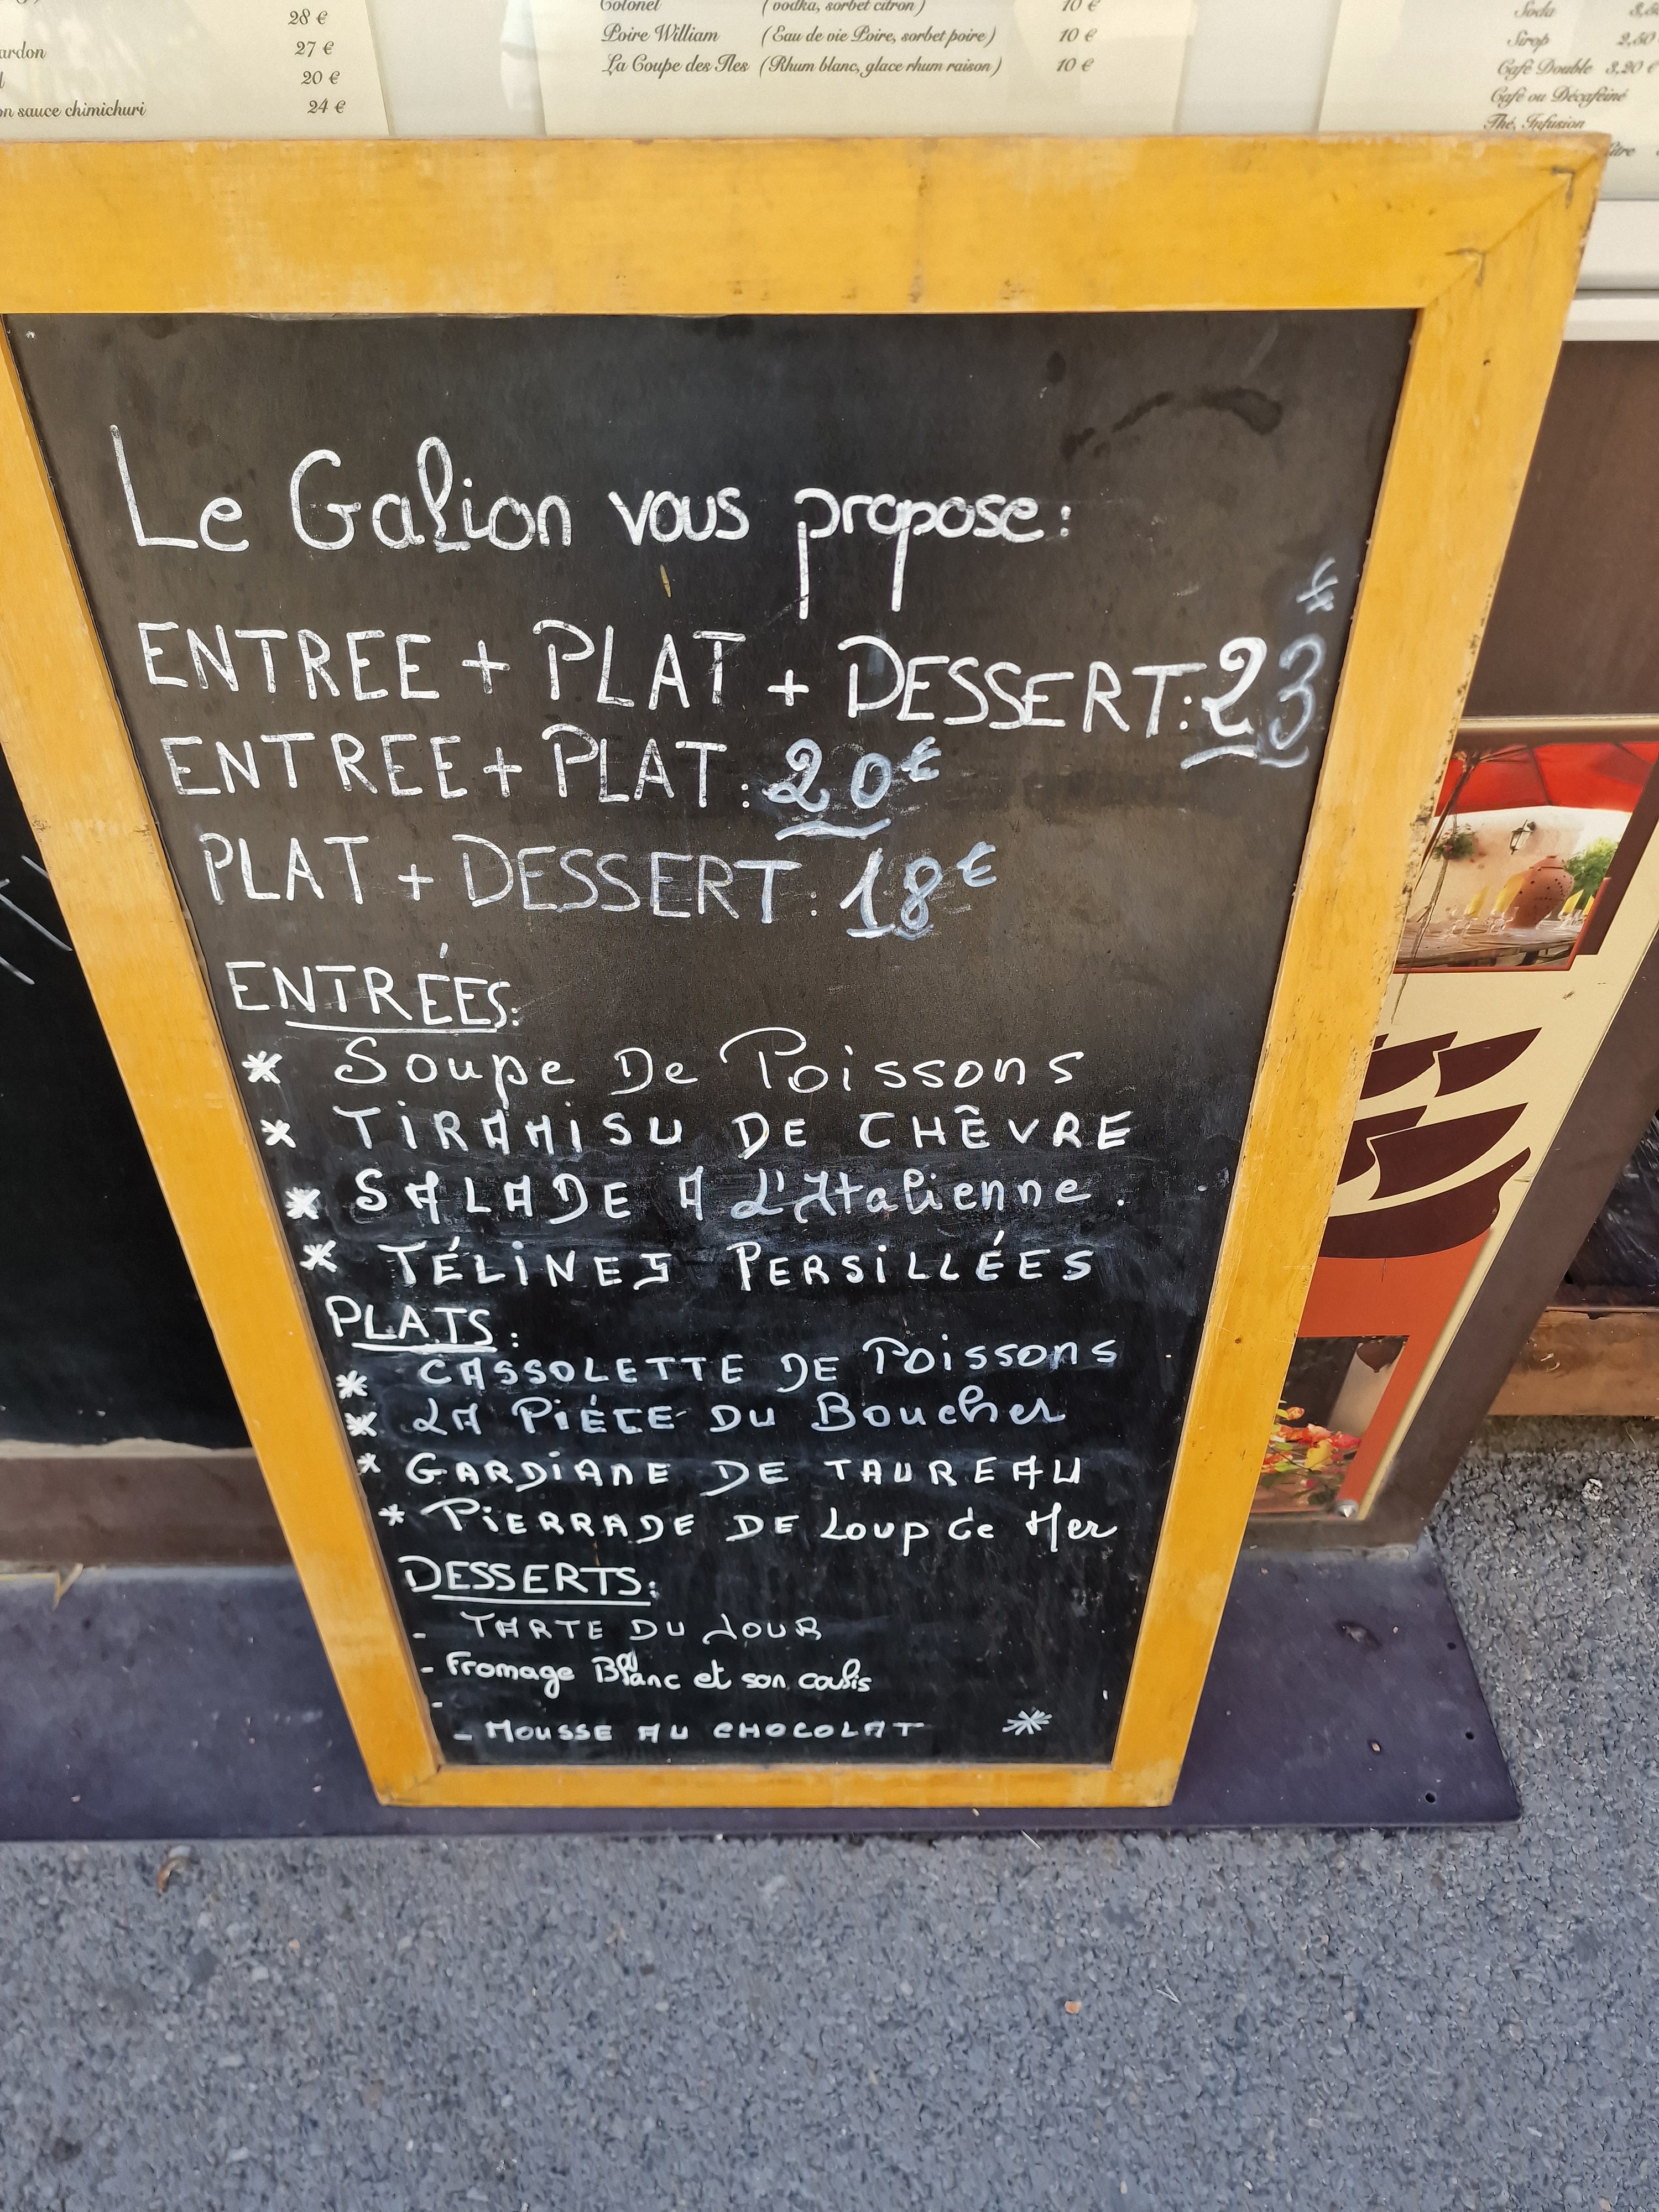 28 €
27 €
20 €
on sauce chimichuri 24 €
Colonel (vodka, sorbet citron) 10 €
Poire William (Eau de vie Poire, sorbet poire) 10 €
La Coupe des Iles (Rhum blanc, glace rhum raison) 10 €
Soda
Sirop
Café Double 3,20 €
Café ou Décaféiné
Thé, Infusion
Le Galion vous propose:
ENTREE + PLAT + DESSERT: 23 €
ENTREE + PLAT: 20 €
PLAT + DESSERT: 18 €
ENTRÉES:
* Soupe De Poissons
* TIRAMISU DE CHÊVRE
* SALADE A L'Italienne.
* TÉLINES PERSILLÉES
PLATS:
* CASSOLETTE DE Poissons
* LA PIÉCE DU Boucher
* GARDIANE DE TAUREAU
* PIERRADE DE Loup de Mer
DESSERTS:
- TARTE DU JOUR
- Fromage Blanc et son coulis
-
- MOUSSE AU CHOCOLAT *